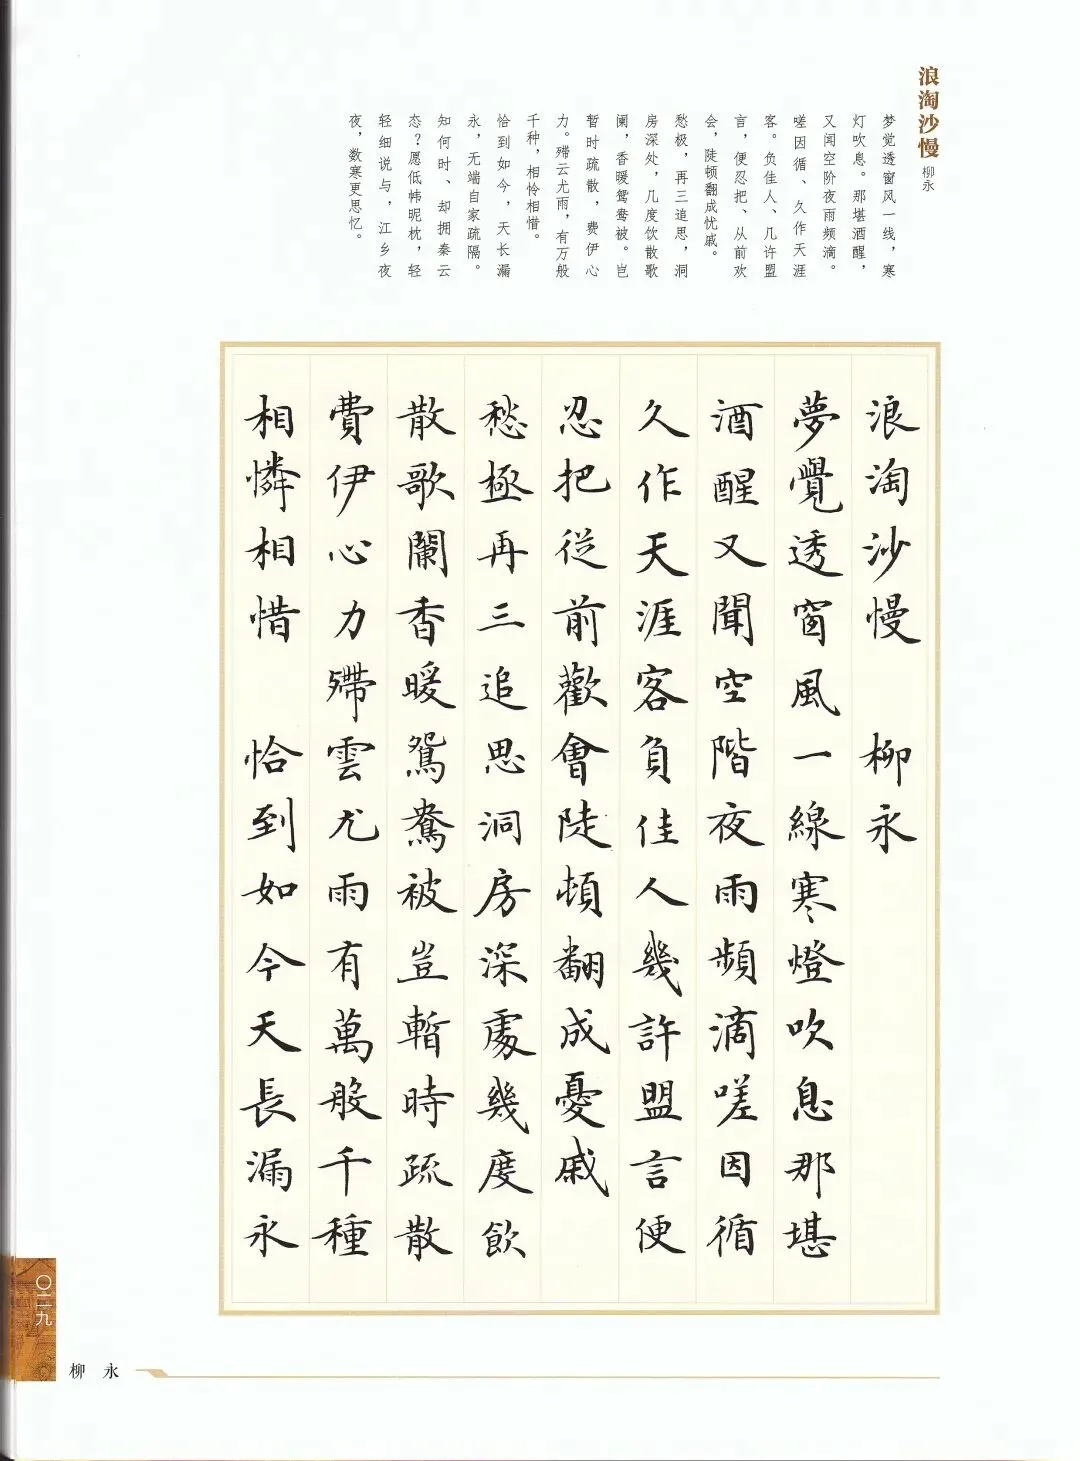 浪淘沙慢 柳永
梦觉透窗风一线，寒
灯吹息。那堪酒醒，
又闻空阶夜雨频滴。
嗟因循、久作天涯
客。负佳人、几许盟
言，便忍把、从前欢
会，陡顿翻成忧戚。
愁极，再三追思，洞
房深处，几度饮散歌
阑，香暖鸳鸯被。岂
暂时疏散，费伊心
力。殢云尤雨，有万般
千种，相怜相惜。
恰到如今，天长漏
永，无端自家疏隔。
知何时、却拥秦云
态？愿低帏昵枕，轻
轻细说与，江乡夜
夜，数寒更思忆。
浪淘沙慢 柳永
夢覺透窗風一線寒燈吹息那堪
酒醒又聞空階夜雨頻滴嗟因循
久作天涯客負佳人幾許盟言便
忍把從前歡會陡頓翻成憂戚
愁極再三追思洞房深處幾度飲
散歌闌香暖鴛鴦被豈暫時疏散
費伊心力殢雲尤雨有萬般千種
相憐相惜 恰到如今天長漏永
〇二一九
柳永